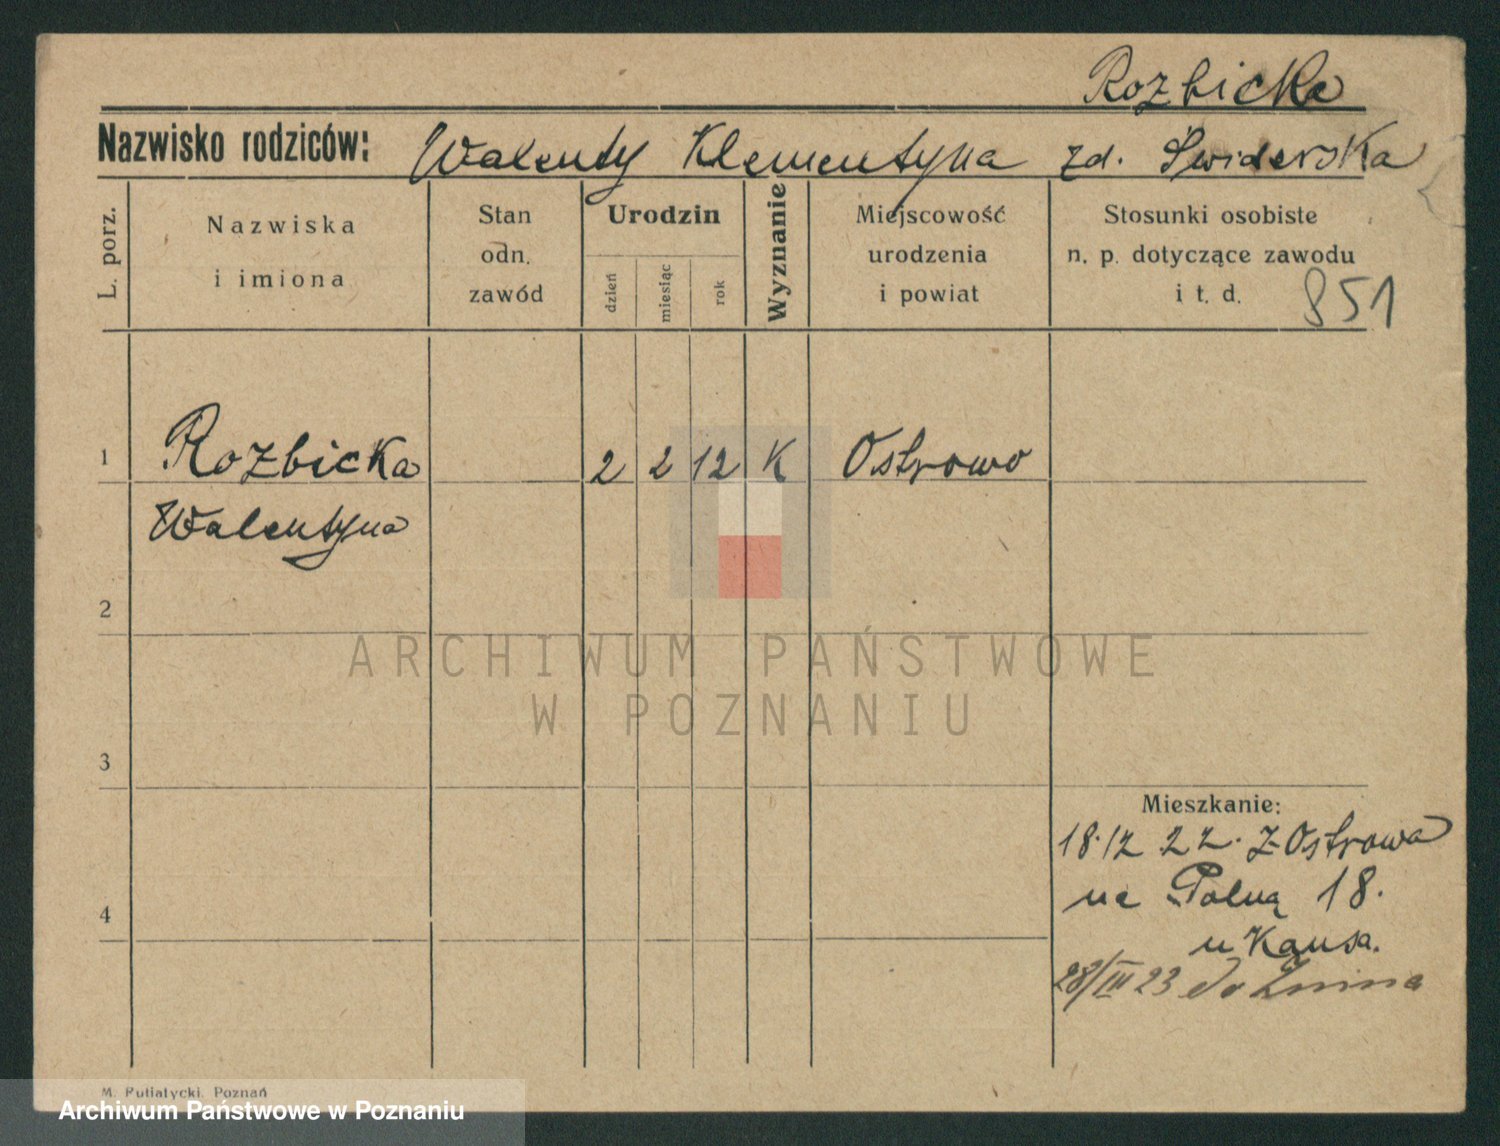 Rozbicka
Nazwisko rodziców: Walenty Klementyna zd. Świderska
L. porz.
Nazwiska
i imiona
Stan
odn.
zawód
Urodzin
dzień
miesiąc
rok
Wyznanie
Miejscowość
urodzenia
i powiat
Stosunki osobiste
n. p. dotyczące zawodu
i t. d.
851
1 Rozbicka 2 2 12 K Ostrowo
Walentyna
2
ARCHIWUM PAŃSTWOWE
W POZNANIU
3
Mieszkanie:
18.12 22. z Ostrowa
na Polną 18.
u Kausa.
4
28/III 23 do Żnina
M. Putiatycki. Poznań
Archiwum Państwowe w Poznaniu